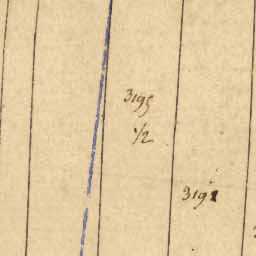 3195
1/2
3191